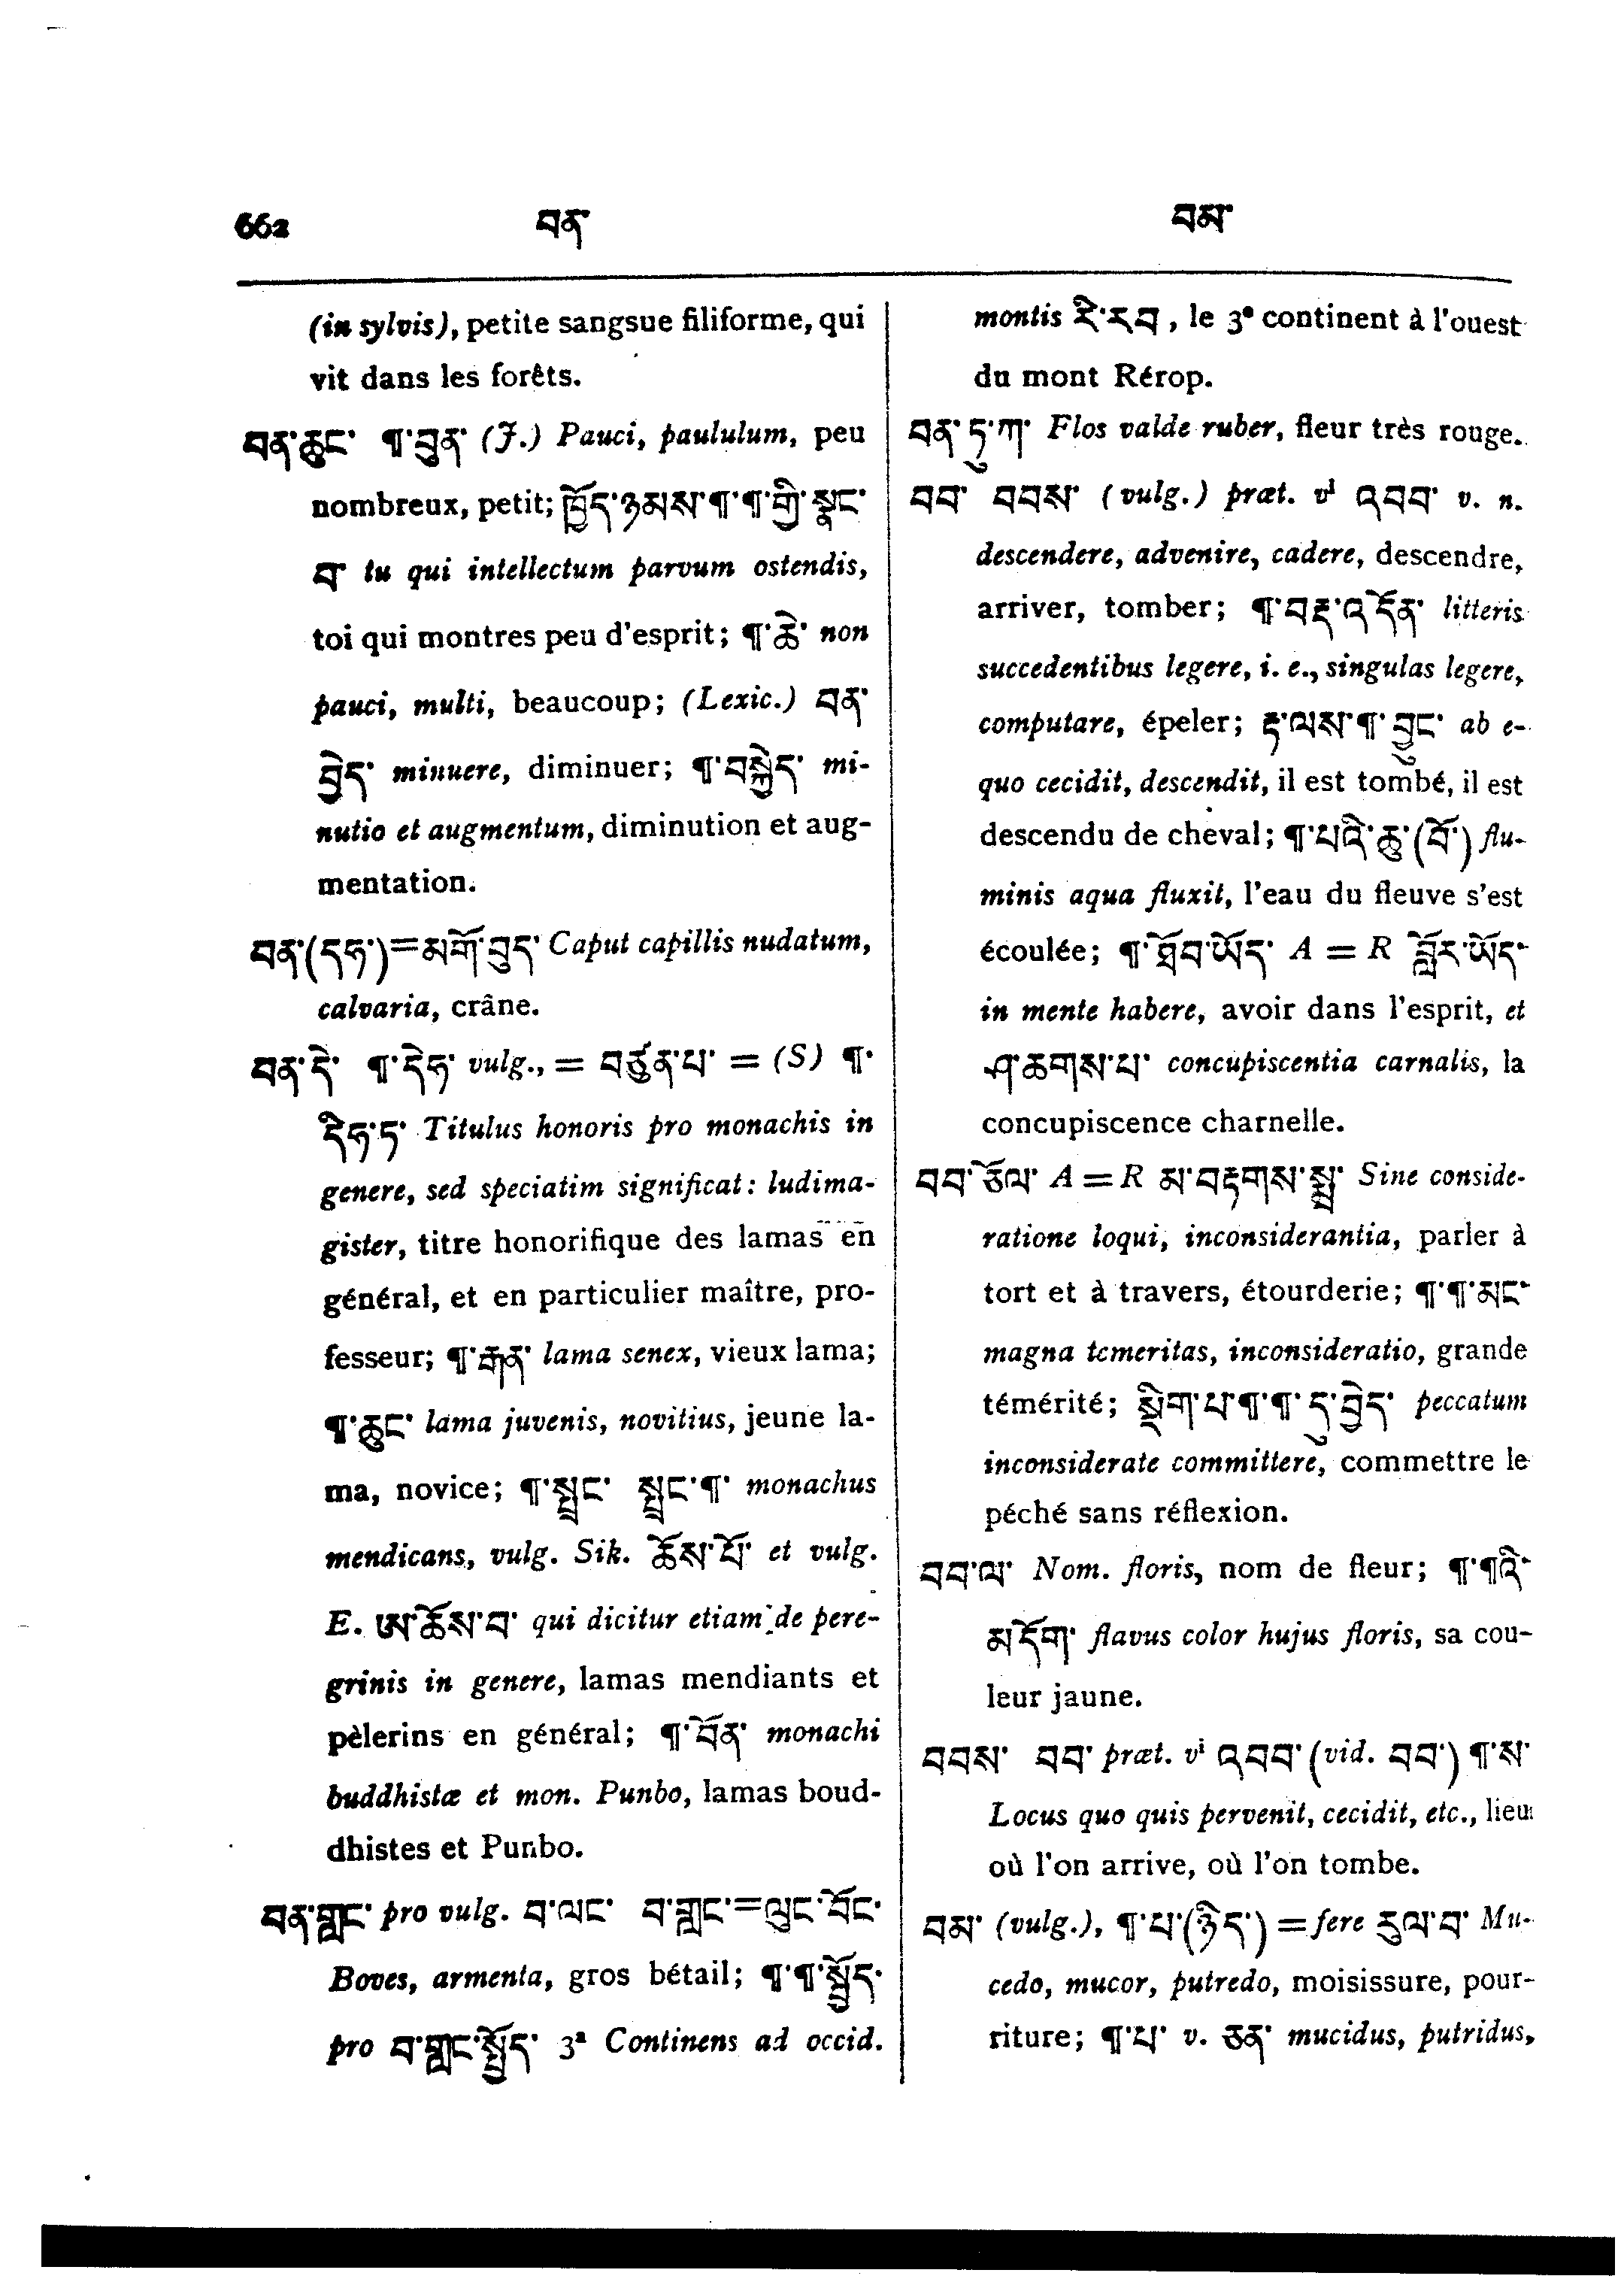 662 བན་ བམ་
(in sylvis), petite sangsue filiforme, qui
vit dans les forêts.
བན་ཆུང་ ¶་བྲུན་ (J.) Pauci, paululum, peu
nombreux, petit; ཁྱོད་ཉམས་¶་¶་གྱི་སྣང་
བ་ tu qui intellectum parvum ostendis,
toi qui montres peu d'esprit; ¶་ཆེ་ non
pauci, multi, beaucoup; (Lexic.) བན་
བྱེད་ minuere, diminuer; ¶་བསྐྱེད་ mi-
nutio et augmentum, diminution et aug-
mentation.
བན་(དཧ་)=མགོ་བུད་ Caput capillis nudatum,
calvaria, crâne.
བན་དེ་ ¶་དེཧ་ vulg., = བཙུན་པ་ = (S) ¶་
དེཧ་ཏ་ Titulus honoris pro monachis in
genere, sed speciatim significat: ludima-
gister, titre honorifique des lamas en
général, et en particulier maître, pro-
fesseur; ¶་རྒན་ lama senex, vieux lama;
¶་ཆུང་ lama juvenis, novitius, jeune la-
ma, novice; ¶་སྤྲང་ སྤྲང་¶་ monachus
mendicans, vulg. Sik. ཆོས་པོ་ et vulg.
E. ཨ་ཆོས་བ་ qui dicitur etiam de pere-
grinis in genere, lamas mendiants et
pèlerins en général; ¶་བོན་ monachi
buddhistæ et mon. Punbo, lamas boud-
dhistes et Punbo.
བན་གླང་ pro vulg. བ་ལང་ བ་གླང་=ལུང་བོང་
Boves, armenta, gros bétail; ¶་¶་སྤྱོད་
pro བ་གླང་སྤྱོད་ 3ª Continens ad occid.
montis རི་རབ, le 3e continent à l'ouest
du mont Rérop.
བན་དུ་ཀ་ Flos valde ruber, fleur très rouge.
བབ་ བབས་ (vulg.) præt. vi འབབ་ v. n.
descendere, advenire, cadere, descendre,
arriver, tomber; ¶་བརྡ་འདོན་ litteris
succedentibus legere, i. e., singulas legere,
computare, épeler; རྟ་ལས་¶་བྱུང་ ab e-
quo cecidit, descendit, il est tombé, il est
descendu de cheval; ¶་པའི་ཆུ་(བོ་) flu-
minis aqua fluxit, l'eau du fleuve s'est
écoulée; ¶་ཐོབ་ཡོད་ A = R བློར་ཡོད་
in mente habere, avoir dans l'esprit, et
ཤ་ཆགས་པ་ concupiscentia carnalis, la
concupiscence charnelle.
བབ་ཅོལ་ A = R མ་བརྟགས་སྨྲ་ Sine conside-
ratione loqui, inconsiderantia, parler à
tort et à travers, étourderie; ¶་¶་མང་
magna temeritas, inconsideratio, grande
témérité; སྡིག་པ་¶་¶་དུ་བྱེད་ peccatum
inconsiderate committere, commettre le
péché sans réflexion.
བབ་ལ་ Nom. floris, nom de fleur; ¶་¶འི་
མདོག་ flavus color hujus floris, sa cou-
leur jaune.
བབས་ བབ་ præt. vi འབབ་ (vid. བབ་) ¶་ས་
Locus quo quis pervenit, cecidit, etc., lieu
où l'on arrive, où l'on tombe.
བམ་ (vulg.), ¶་པ་(ཉིད་) = fere རུལ་བ་ Mu-
cedo, mucor, putredo, moisissure, pour-
riture; ¶་པ་ v. ཅན་ mucidus, putridus,